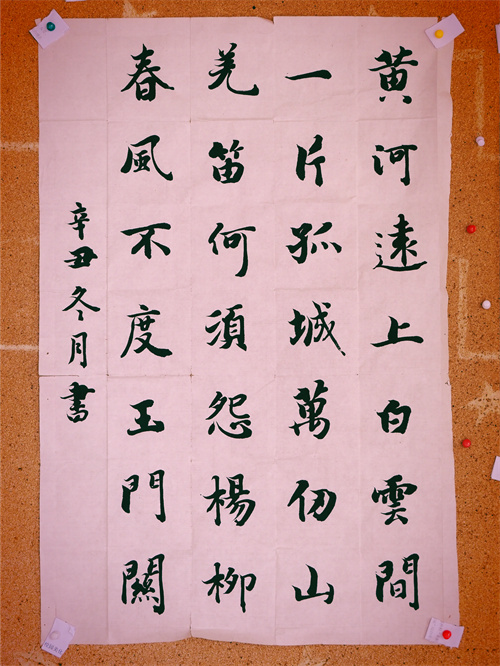 黄河遠上白雲間
一片孤城萬仞山
羌笛何須怨楊柳
春風不度玉門關
辛丑冬月書